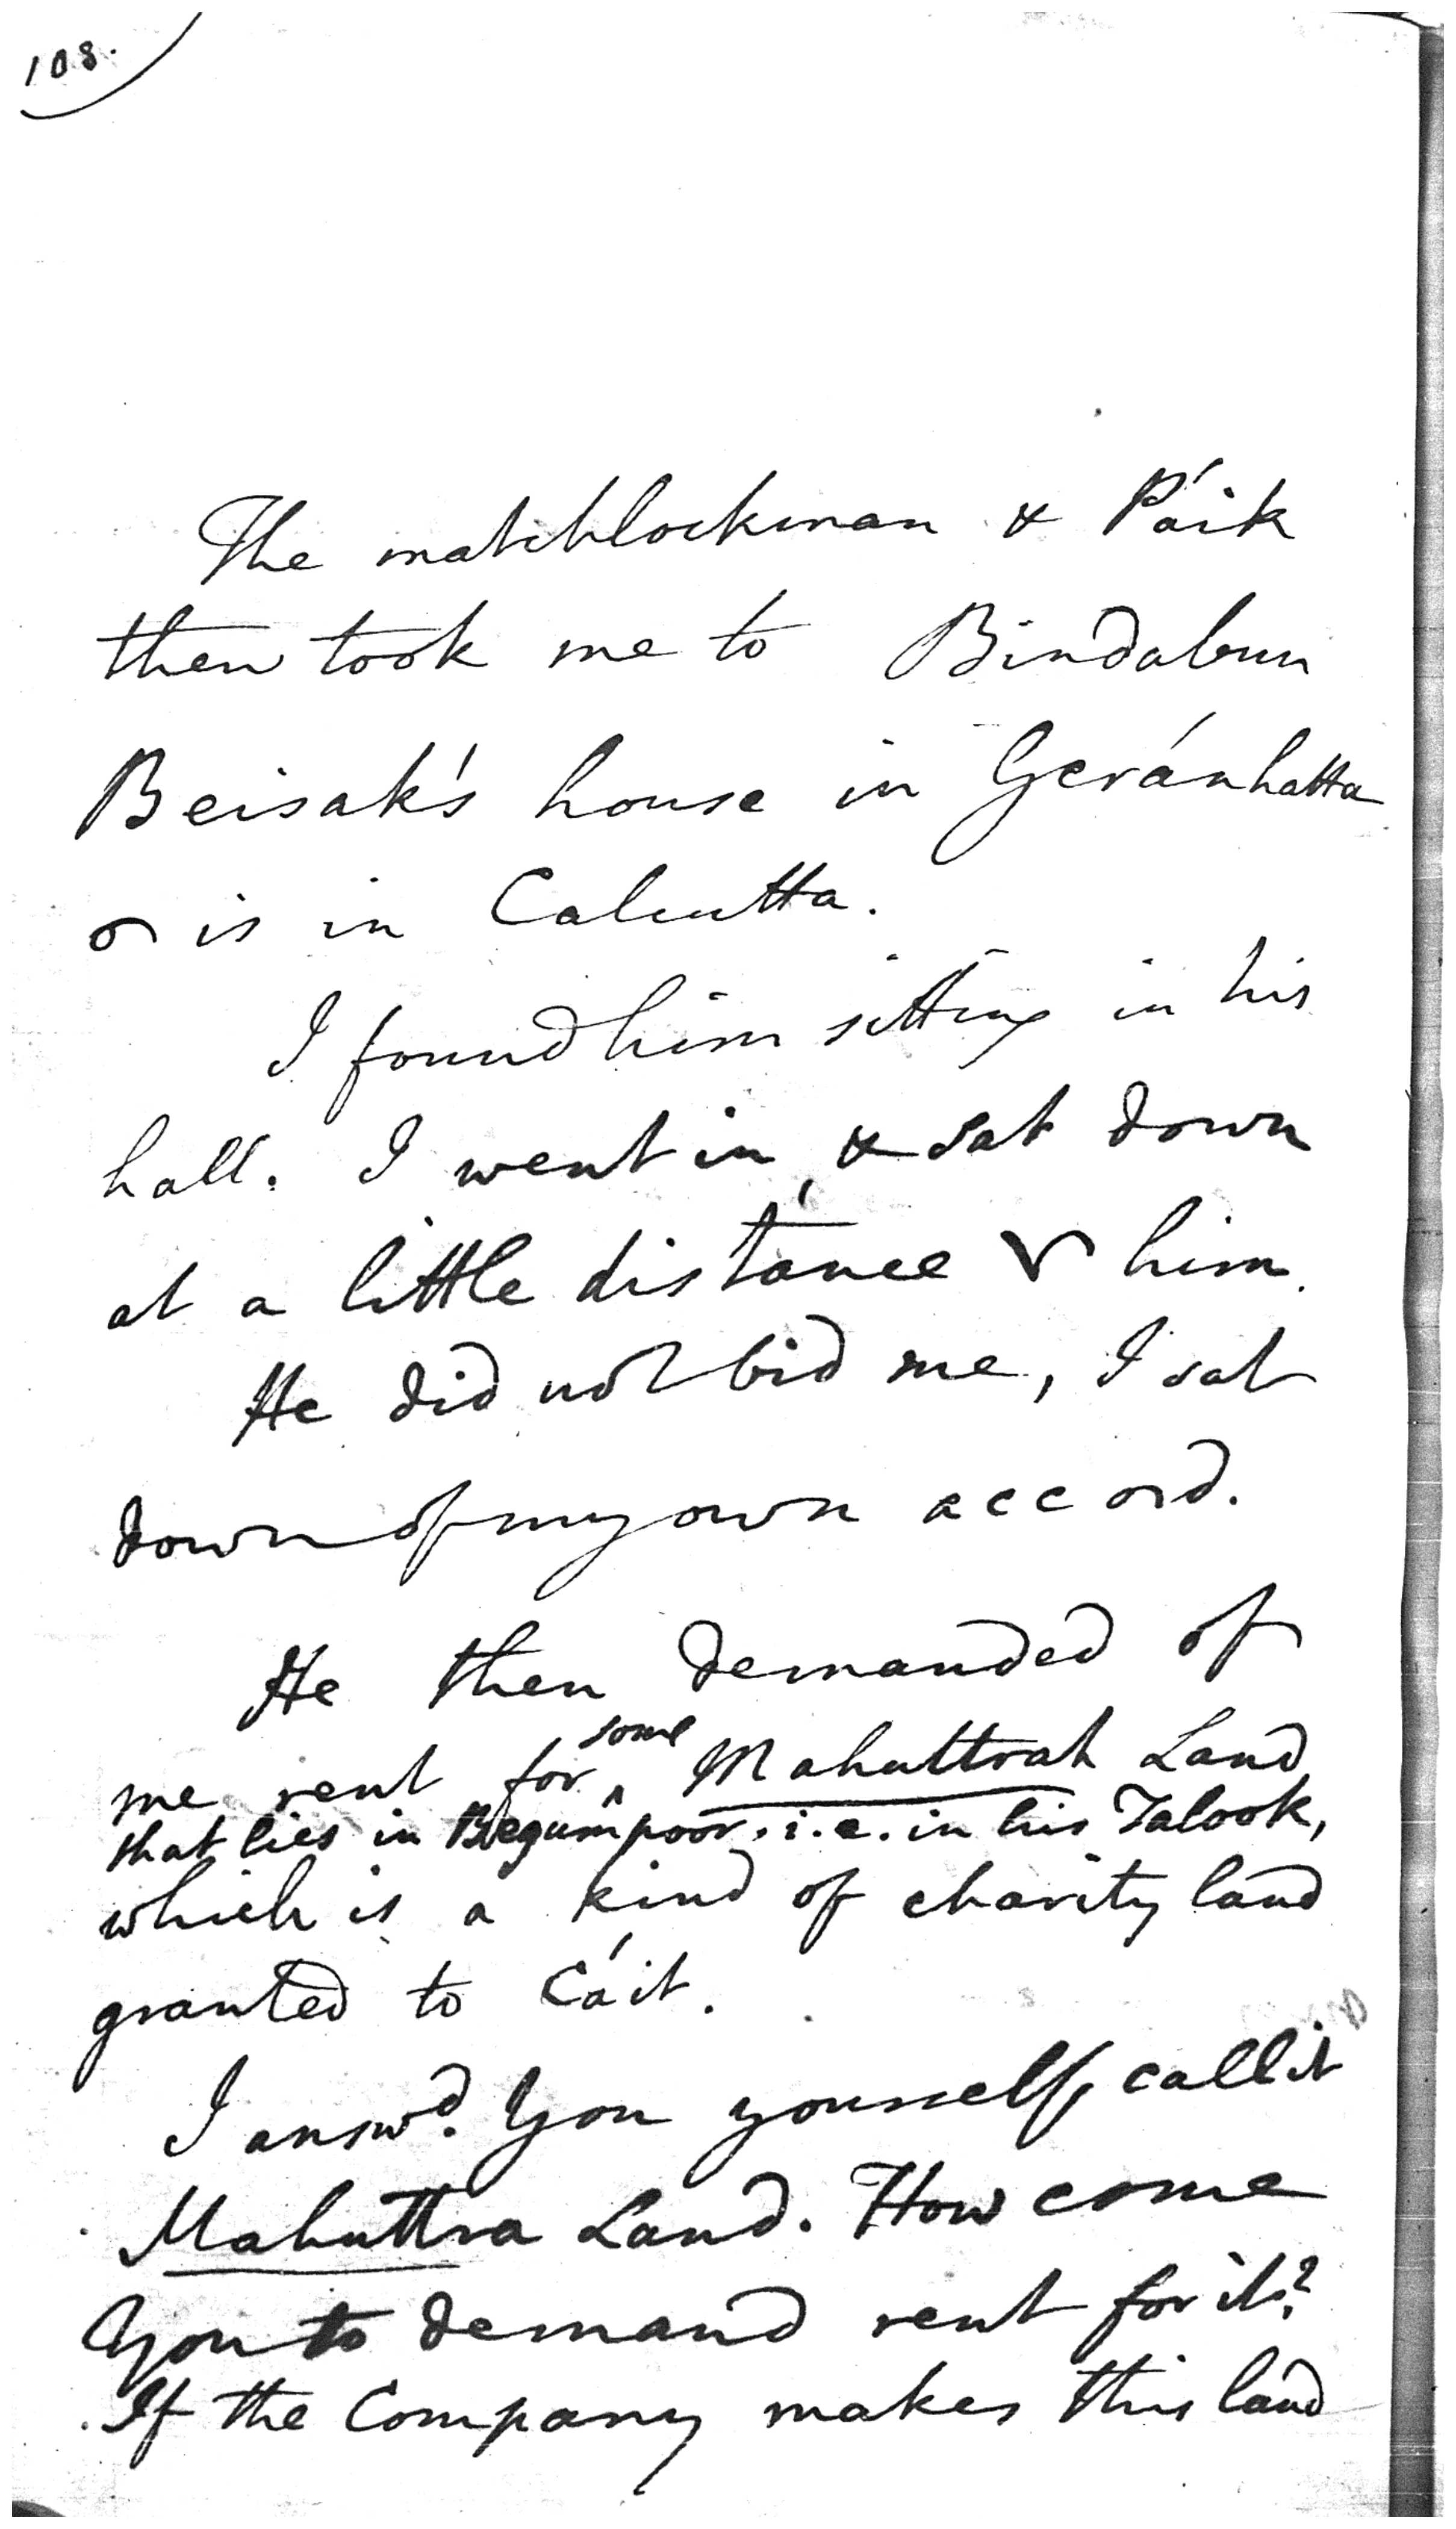 108.
The matchlockman & Páik
then took me to Bindabun
Beisak's house in Geránhatta
is in Calcutta.
I found him sitting in his
hall. I went in, & sat down
at a little distance him.
He did not bid me, I sat
down of my own accord.
He then demanded of
some
me rent for ‸ Mahuttrah Land,
that lies in Begumpoor, i.e. in his Talook,
which is a kind of charity land
granted to Cáit.
I answd. You yourself, call it
Mahuttra Land. How come
You to demand rent for it?
If the Company makes this land